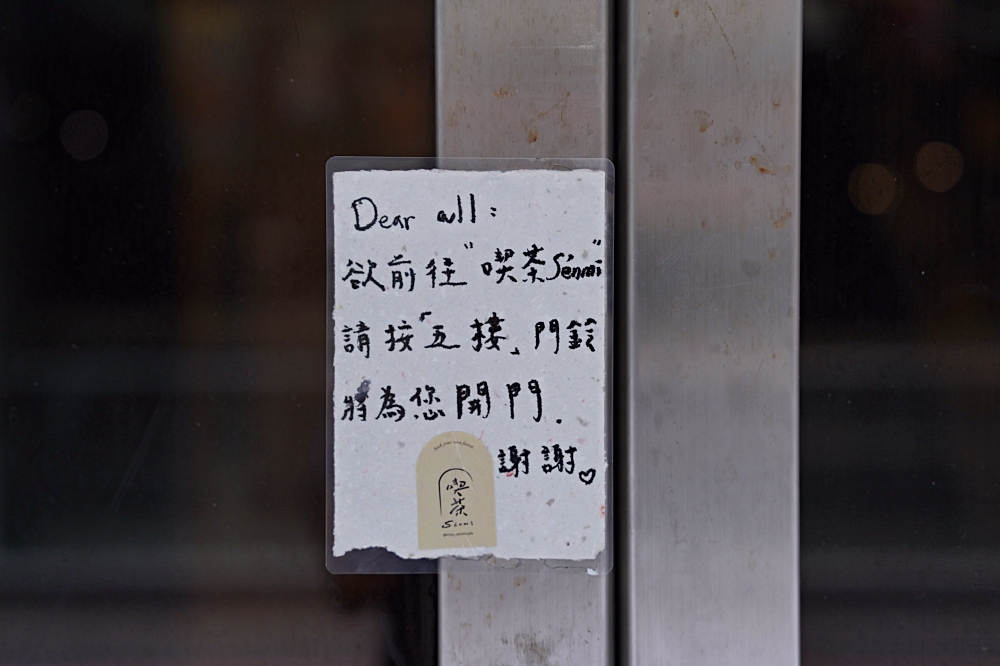 Dear all:
欲前往"喫茶Senmi"
請按「五樓」門鈴
將為您開門.
謝謝♡
喫
茶
Senmi